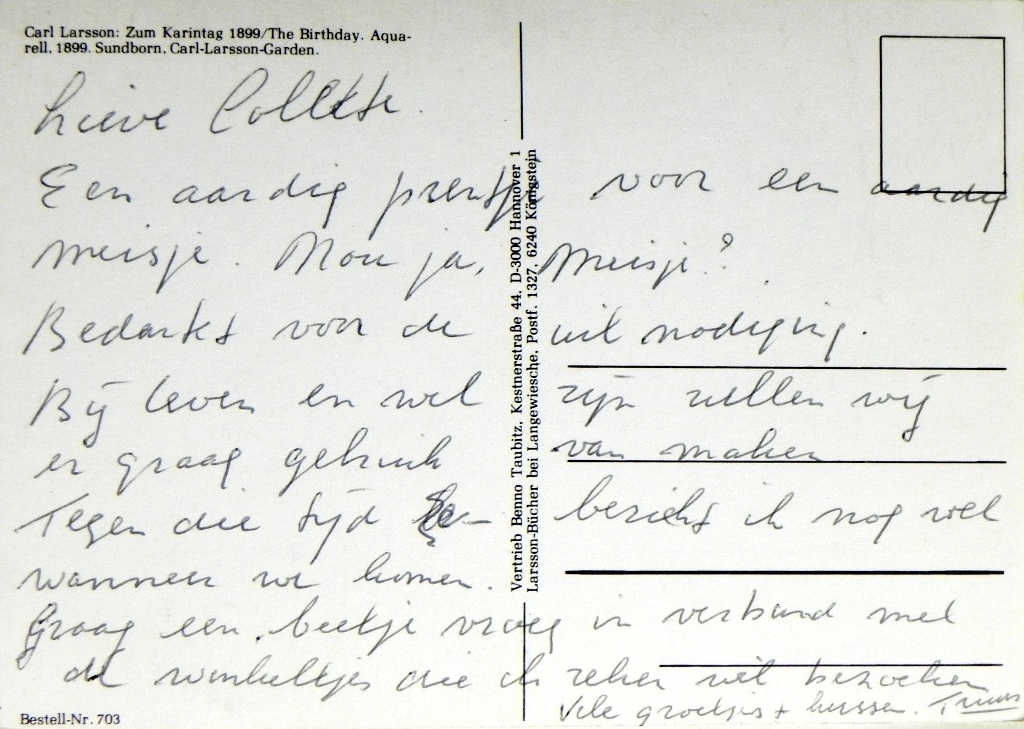 Carl Larsson: Zum Karintag 1899/The Birthday. Aqua-
rell, 1899. Sundborn, Carl-Larsson-Garden.
Lieve Collette.
Een aardig prentje voor een aardig
meisje. Nou ja, meisje?
Bedankt voor de uitnodiging.
Bij leven en wel zijn zullen wij
er graag gebruik van maken
Tegen die tijd bericht ik nog wel
wanneer we komen.
Graag een beetje vroeg in verband met
de winkeltjes die ik zeker wil bezoeken
Vele groetjes + kussen. Truus
Vertrieb Benno Taubitz, Kestnerstraße 44, D-3000 Hannover 1
Larsson-Bücher bei Langewiesche, Postf. 1327, 6240 Königstein
Bestell-Nr. 703